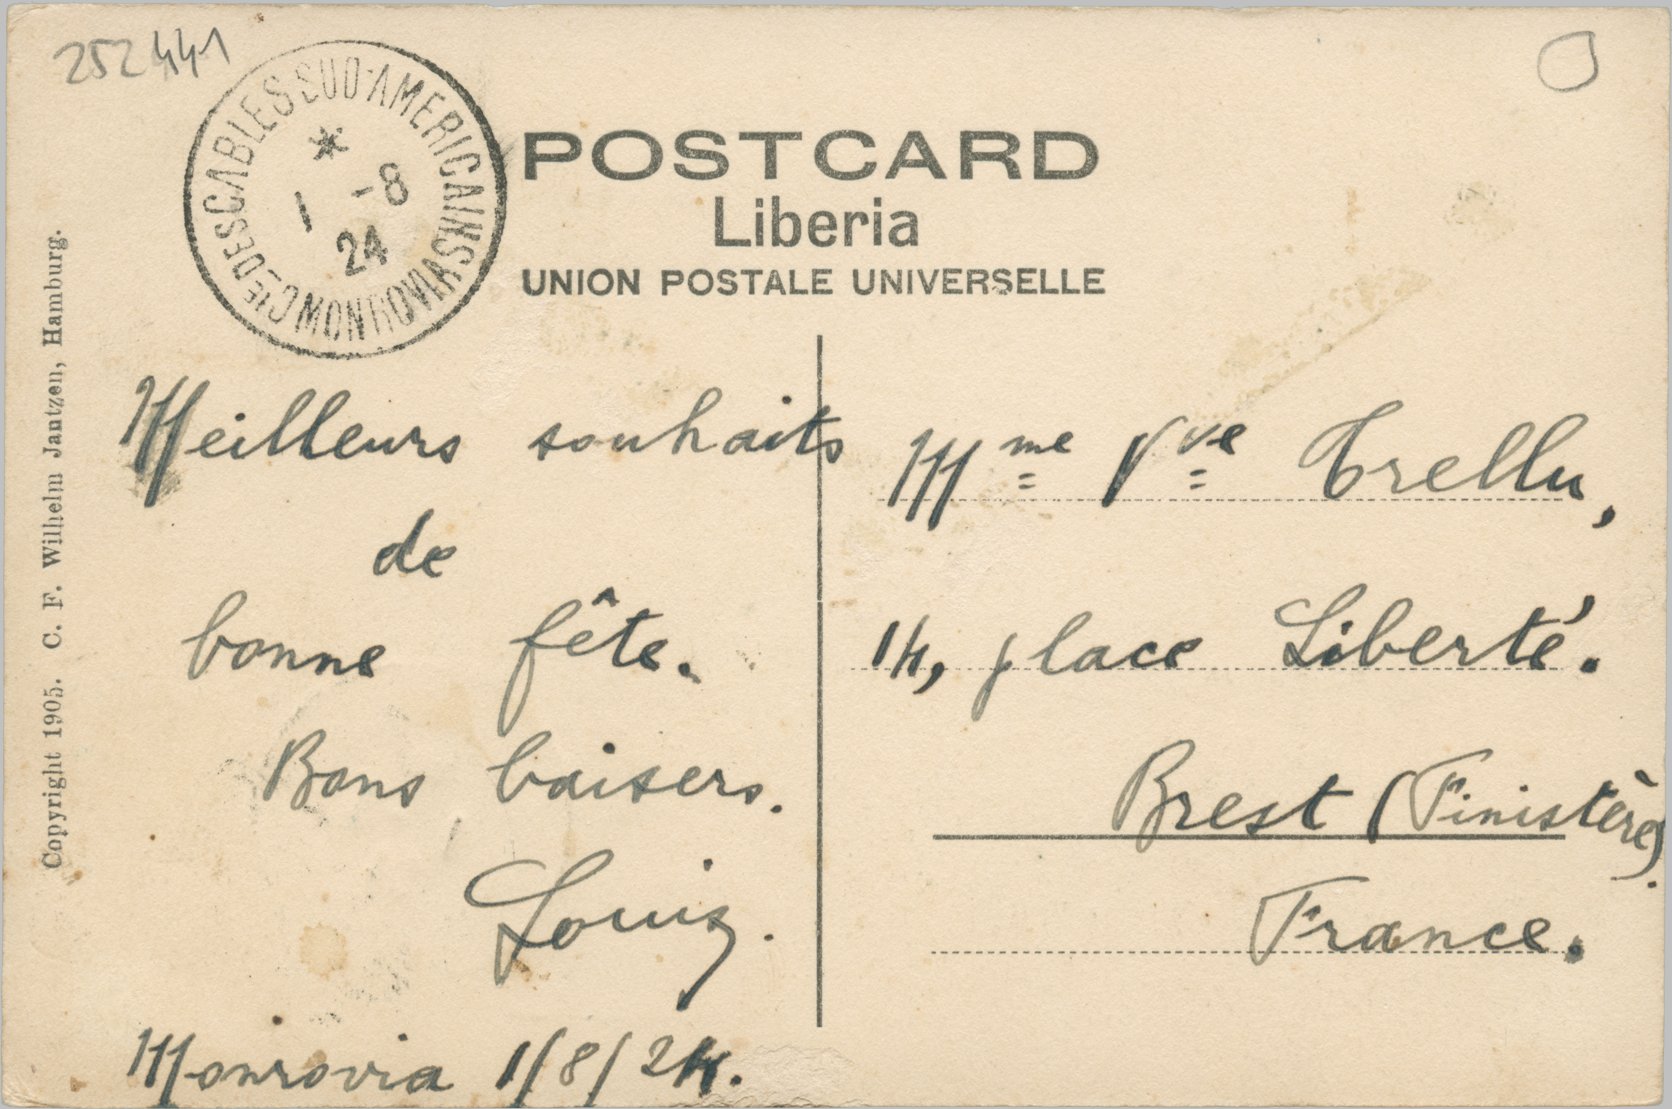 252441
Cie DES CABLES SUD-AMERICAINS MONROVIA
* 1 -8 24
POSTCARD
Liberia
UNION POSTALE UNIVERSELLE
Copyright 1905. C. F. Wilhelm Jantzen, Hamburg.
Meilleurs souhaits
de
bonne fête.
Bons baisers.
Louis.
Monrovia 1/8/24.
Mme Vve Trellu,
14, place Liberté.
Brest (Finistère).
France.